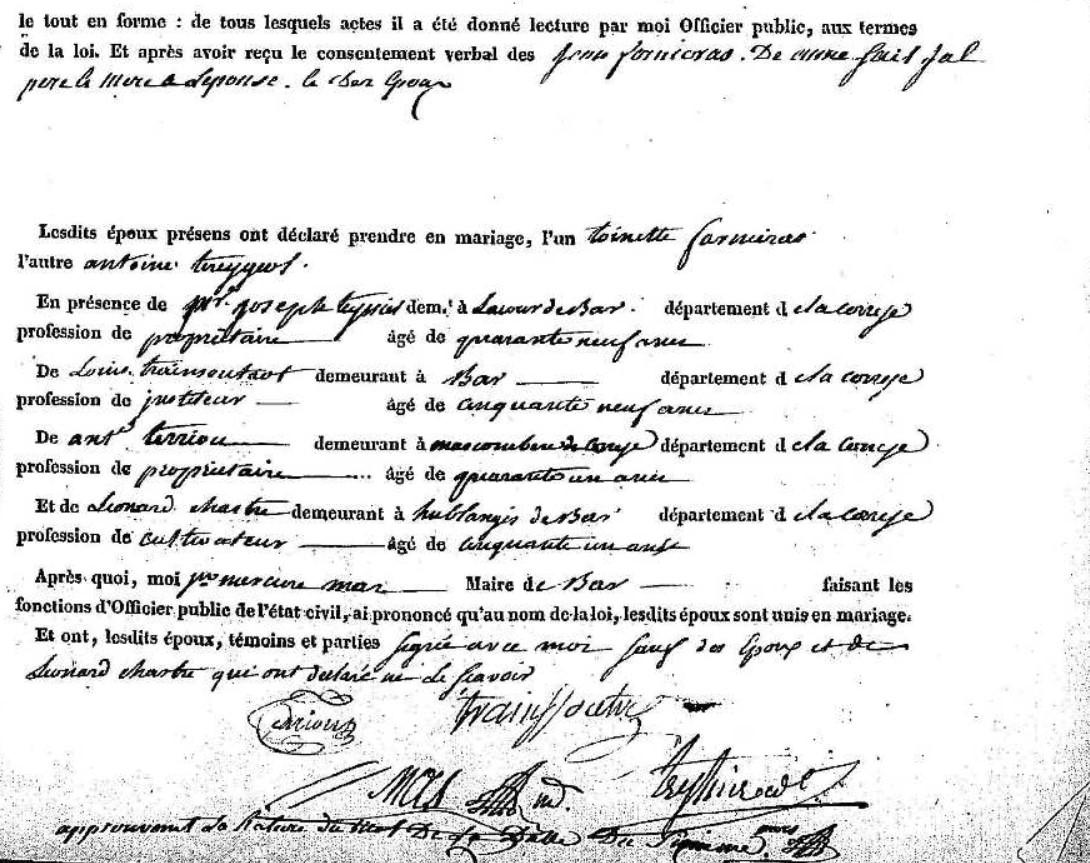 le tout en forme : de tous lesquels actes il a été donné lecture par moi Officier public, aux termes
de la loi. Et après avoir reçu le consentement verbal des jean fornieras. De
pere & Mere a Leponse.
Lesdits époux présens ont déclaré prendre en mariage, l'un toinette farnieras
l'autre antoine
En présence de joseph dem.t à Lacour de Bar. département d e la correze
profession de propriétaire âgé de quarante neuf ans
De Louis demeurant à Bar département d e la correze
profession de instituteur âgé de cinquante neuf ans
De ant.e terriou demeurant à département d e la correze
profession de propriétaire .... âgé de quarante un ans
Et de Leonard chastre demeurant à hublanges de Bar département d e la correze
profession de cultivateur âgé de cinquante un ans
Après quoi, moi mercure mas Maire de Bar faisant les
fonctions d'Officier public de l'état civil, ai prononcé qu'au nom de la loi, lesdits époux sont unis en mariage.
Et ont, lesdits époux, témoins et parties signé avec moi sauf des Epoux et de
Leonard chastre qui ont declaré ne le scavoir
terriou
MAS
approuvant la du mot De la